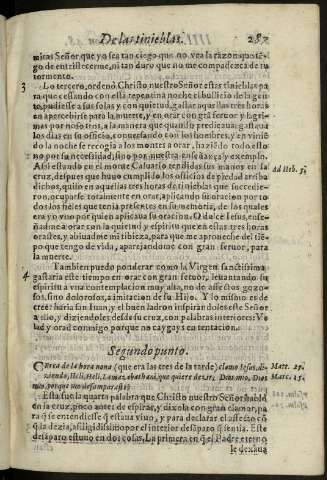 De las tinieblas. 287
mitas Señor que yo sea tan ciego que no vea la razon que tẽ-
go de entristecerme, ni tan duro que no me compadezca de tu
tormento.
3 Lo tercero, ordenó Christo nuestro Señor estas tinieblas pa
ra que cessando con esta repentina noche el bullicio de la gen-
te, pudiesse a sus solas y con quietud, gastar aquellas tres horas
en apercebirse para la muerte, y en orar con grã feruor y lagri-
mas por nosotros, a la manera que quando predicaua: gastaua
los dias en su oficio, conuersando con los hombres, y en viniẽ
do la noche se recogia a los montes a orar, haziẽdo todo esto
no por su necessidad, sino por nuestra enseñança y exemplo.
Assi estando en el monte Caluario tendidas sus manos en la
cruz, despues que huuo cumplido los officios de piedad arriba
dichos, quiso en aquellas tres horas de tinieblas que succedie-
ron, ocuparse totalmente en orar, aplicando su oracion por to
dos los fieles que tenia presentes en su memoria, de los quales
era yo vno por quien aplicaua su oracion. O dulce Iesus, ense-
ñadme a orar con la quietud y espiritu que en estas tres horas
orastes, y abiuad me mi tibieza, para que me aproueche del tiẽ-
po que tengo de vida, aparejandome con gran feruor, para
la muerte.
Ad Heb. 5.
4 Tambien puedo ponderar como la Virgen sanctissima
gastaria este tiempo en orar con gran feruor, leuantando su
espiritu a vna contemplacion muy alta, no de affectos gozo-
sos, sino dolorosos, a imitacion de su Hijo. Y lo mismo es de
creer haria san Iuan, y el buen ladron inspirandoles este Señor
a ello, y diziendoles desde su cruz, con palabras interiores: Ve
lad y orad conmigo, porque no caygays en tentacion.
Segundo punto.
Cerca de la hora nona (que era las tres de la tarde) clamo Iesus, di-
ziendo, Heli, Heli, Lamazabathani, que quiere dezir, Dios mio, Dios
mio, porque me desamparaste?
Matt. 27.
Marc. 15.
Esta fue la quarta palabra que Christo nuestro Señor hablò
en la cruz, poco antes de espirar, y dixola con gran clamor, pa
ra q̃ se entendiesse q̃ estaua viuo, y para declarar el affecto cõ
que la dezia, afligidissimo por el interior desãparo q̃ sentia. Este
desãparo estuuo en dos cosas, La primera en q̃ el Padre eterno
le dexaua